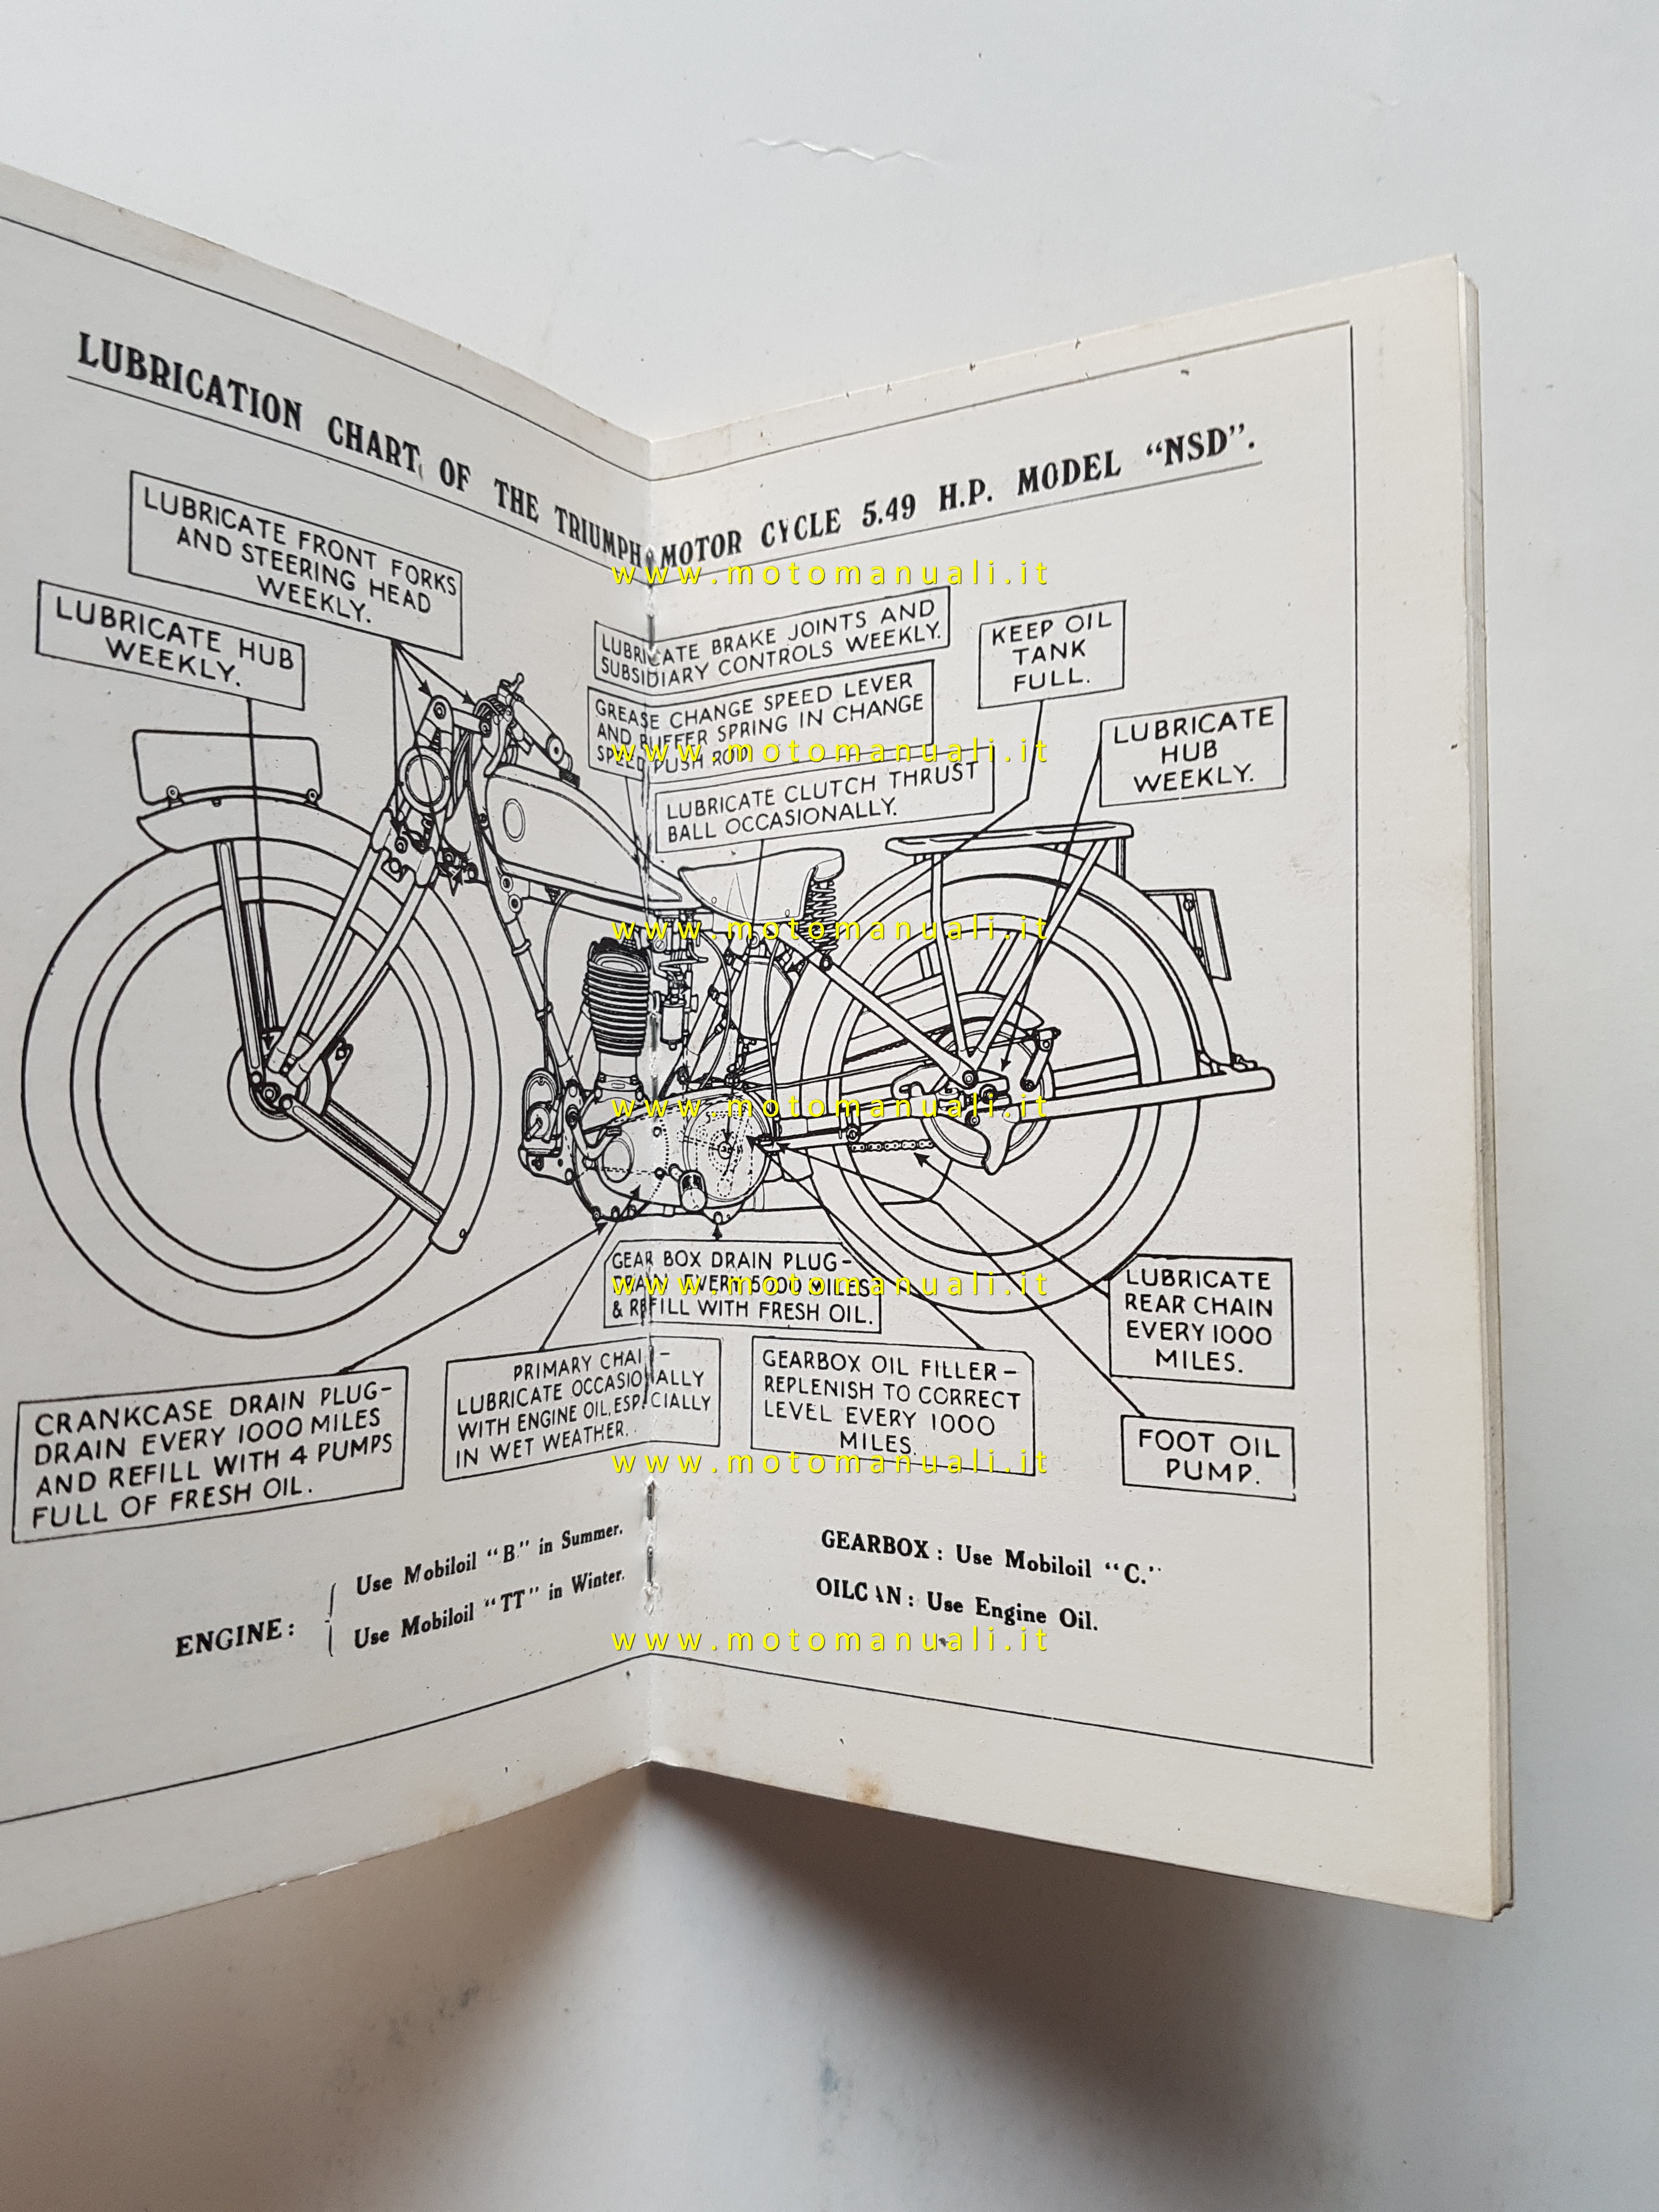 LUBRICATION CHART OF THE TRIUMPH MOTOR CYCLE 5.49 H.P. MODEL "NSD".
LUBRICATE FRONT FORKS
AND STEERING HEAD
WEEKLY.
LUBRICATE HUB
WEEKLY.
www.motomanuali.it
LUBRICATE BRAKE JOINTS AND
SUBSIDIARY CONTROLS WEEKLY.
GREASE CHANGE SPEED LEVER
AND BUFFER SPRING IN CHANGE
SPEED PUSH ROD
www.motomanuali.it
LUBRICATE CLUTCH THRUST
BALL OCCASIONALLY.
KEEP OIL
TANK
FULL.
LUBRICATE
HUB
WEEKLY.
www.motomanuali.it
www.motomanuali.it
GEAR BOX DRAIN PLUG-
DRAIN EVERY 5000 MILES
& REFILL WITH FRESH OIL.
www.motomanuali.it
CRANKCASE DRAIN PLUG-
DRAIN EVERY 1000 MILES
AND REFILL WITH 4 PUMPS
FULL OF FRESH OIL.
PRIMARY CHAIN-
LUBRICATE OCCASIONALLY
WITH ENGINE OIL, ESPECIALLY
IN WET WEATHER.
GEARBOX OIL FILLER-
REPLENISH TO CORRECT
LEVEL EVERY 1000
MILES.
LUBRICATE
REAR CHAIN
EVERY 1000
MILES.
FOOT OIL
PUMP.
www.motomanuali.it
ENGINE:
Use Mobiloil "B" in Summer.
Use Mobiloil "TT" in Winter.
GEARBOX: Use Mobiloil "C."
OILCAN: Use Engine Oil.
www.motomanuali.it